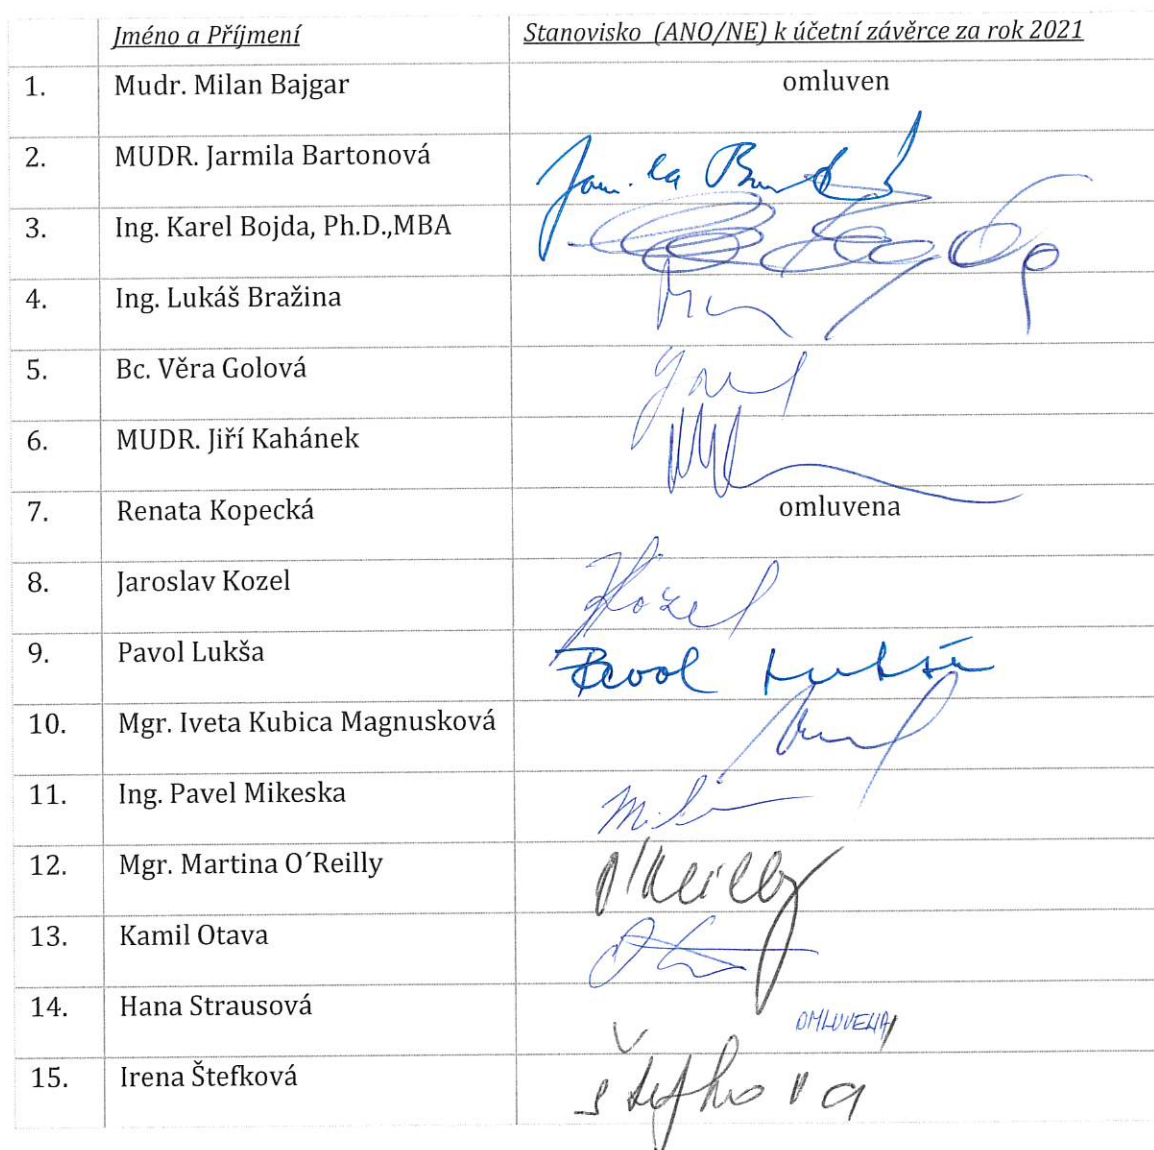 Jméno a Příjmení Stanovisko (ANO/NE) k účetní závěrce za rok 2021
1. Mudr. Milan Bajgar omluven
2. MUDR. Jarmila Bartonová
3. Ing. Karel Bojda, Ph.D.,MBA
4. Ing. Lukáš Bražina
5. Bc. Věra Golová
6. MUDR. Jiří Kahánek
7. Renata Kopecká omluvena
8. Jaroslav Kozel Kozel
9. Pavol Lukša Pavol Lukša
10. Mgr. Iveta Kubica Magnusková
11. Ing. Pavel Mikeska
12. Mgr. Martina O´Reilly O'Reilly
13. Kamil Otava
14. Hana Strausová OMLUVENA
15. Irena Štefková Štefková